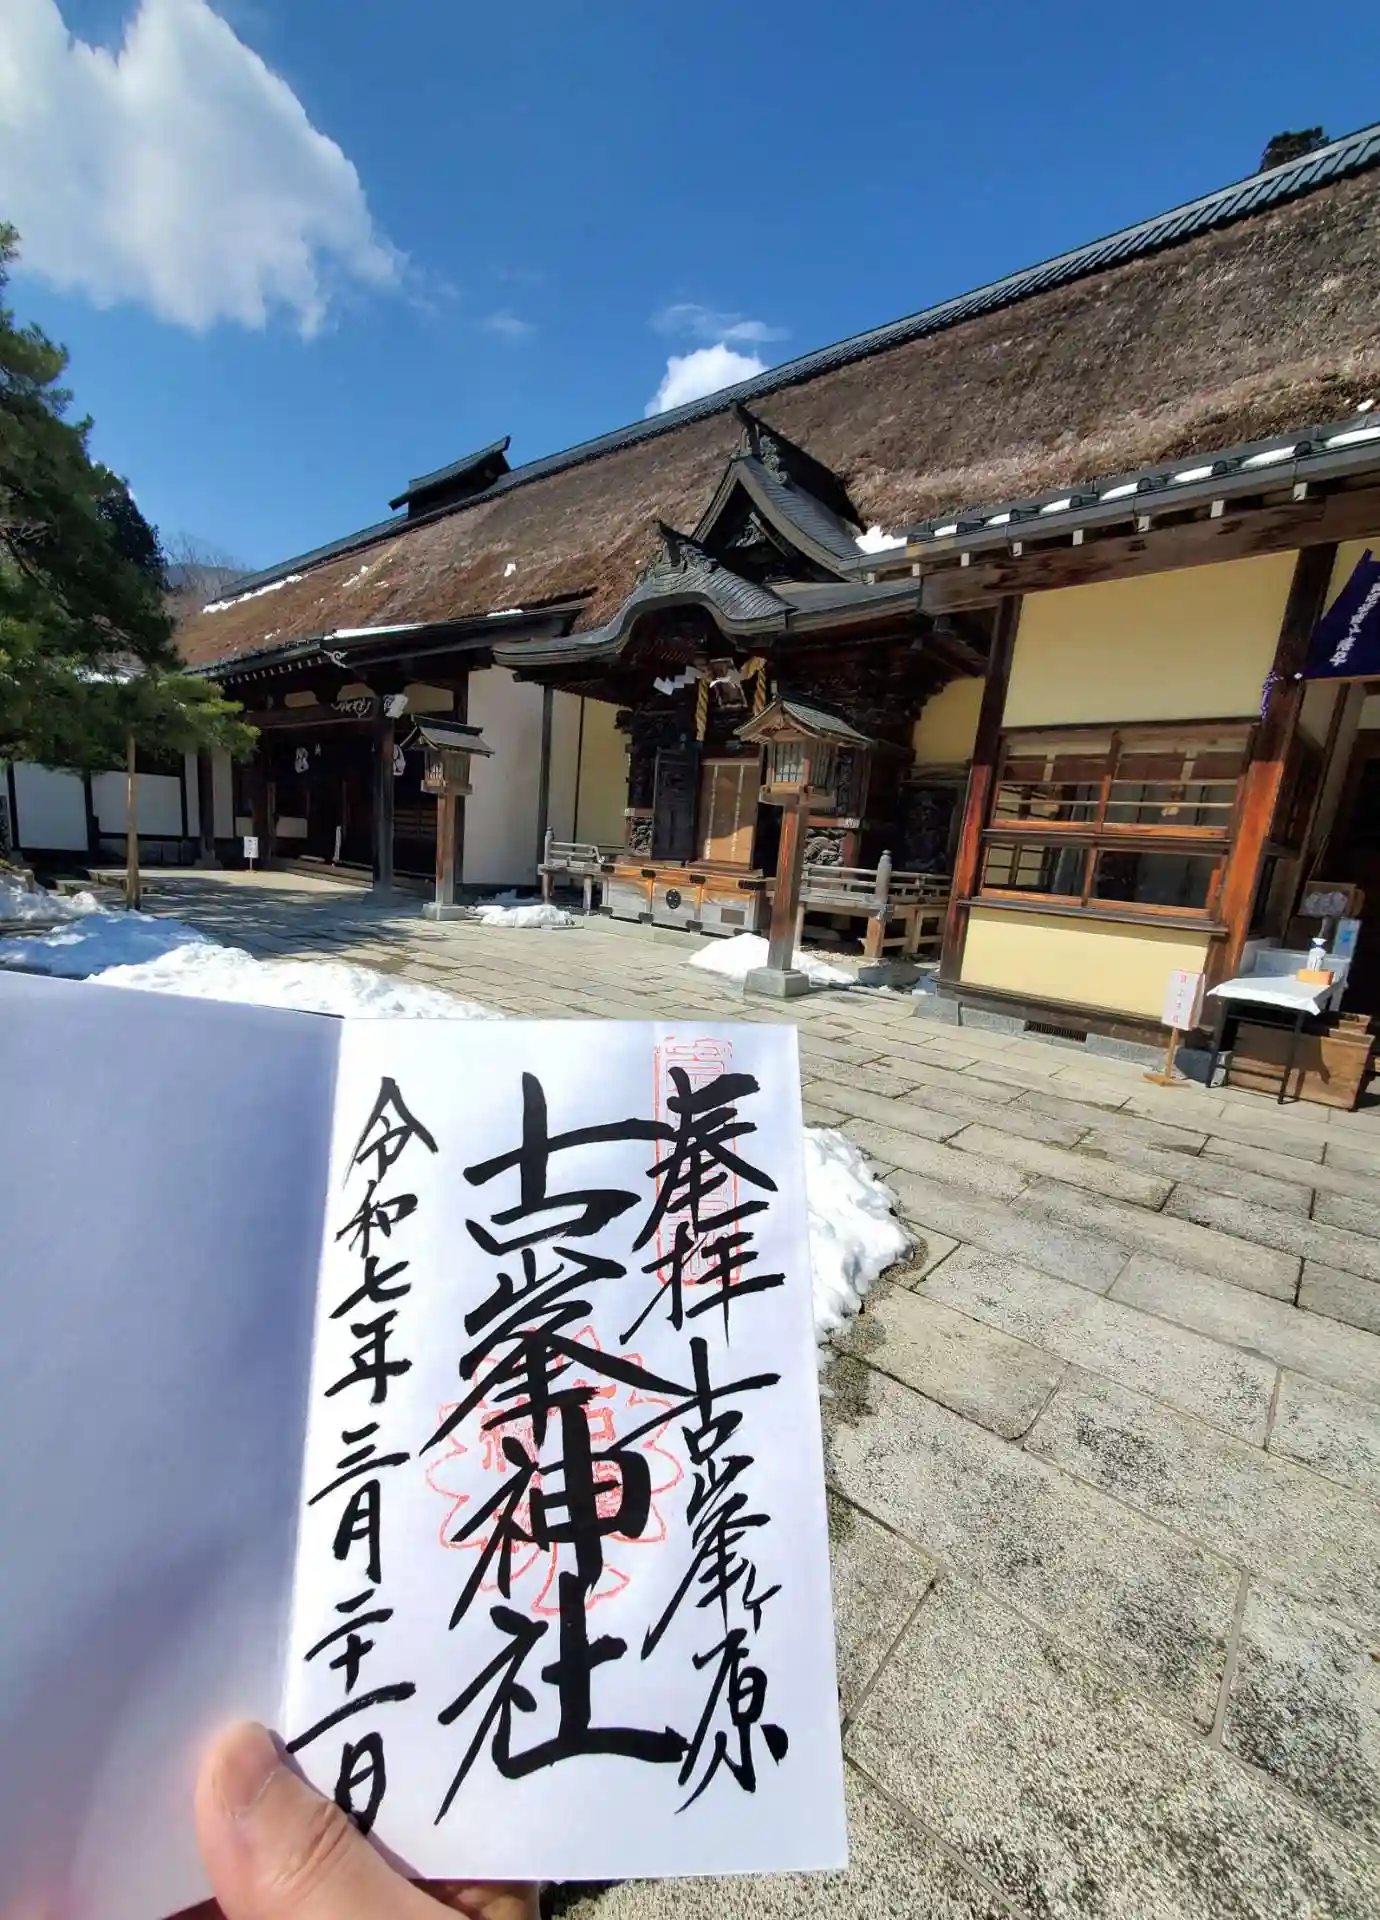 奉拝 古峯ヶ原
古峯神社
令和七年三月二十一日